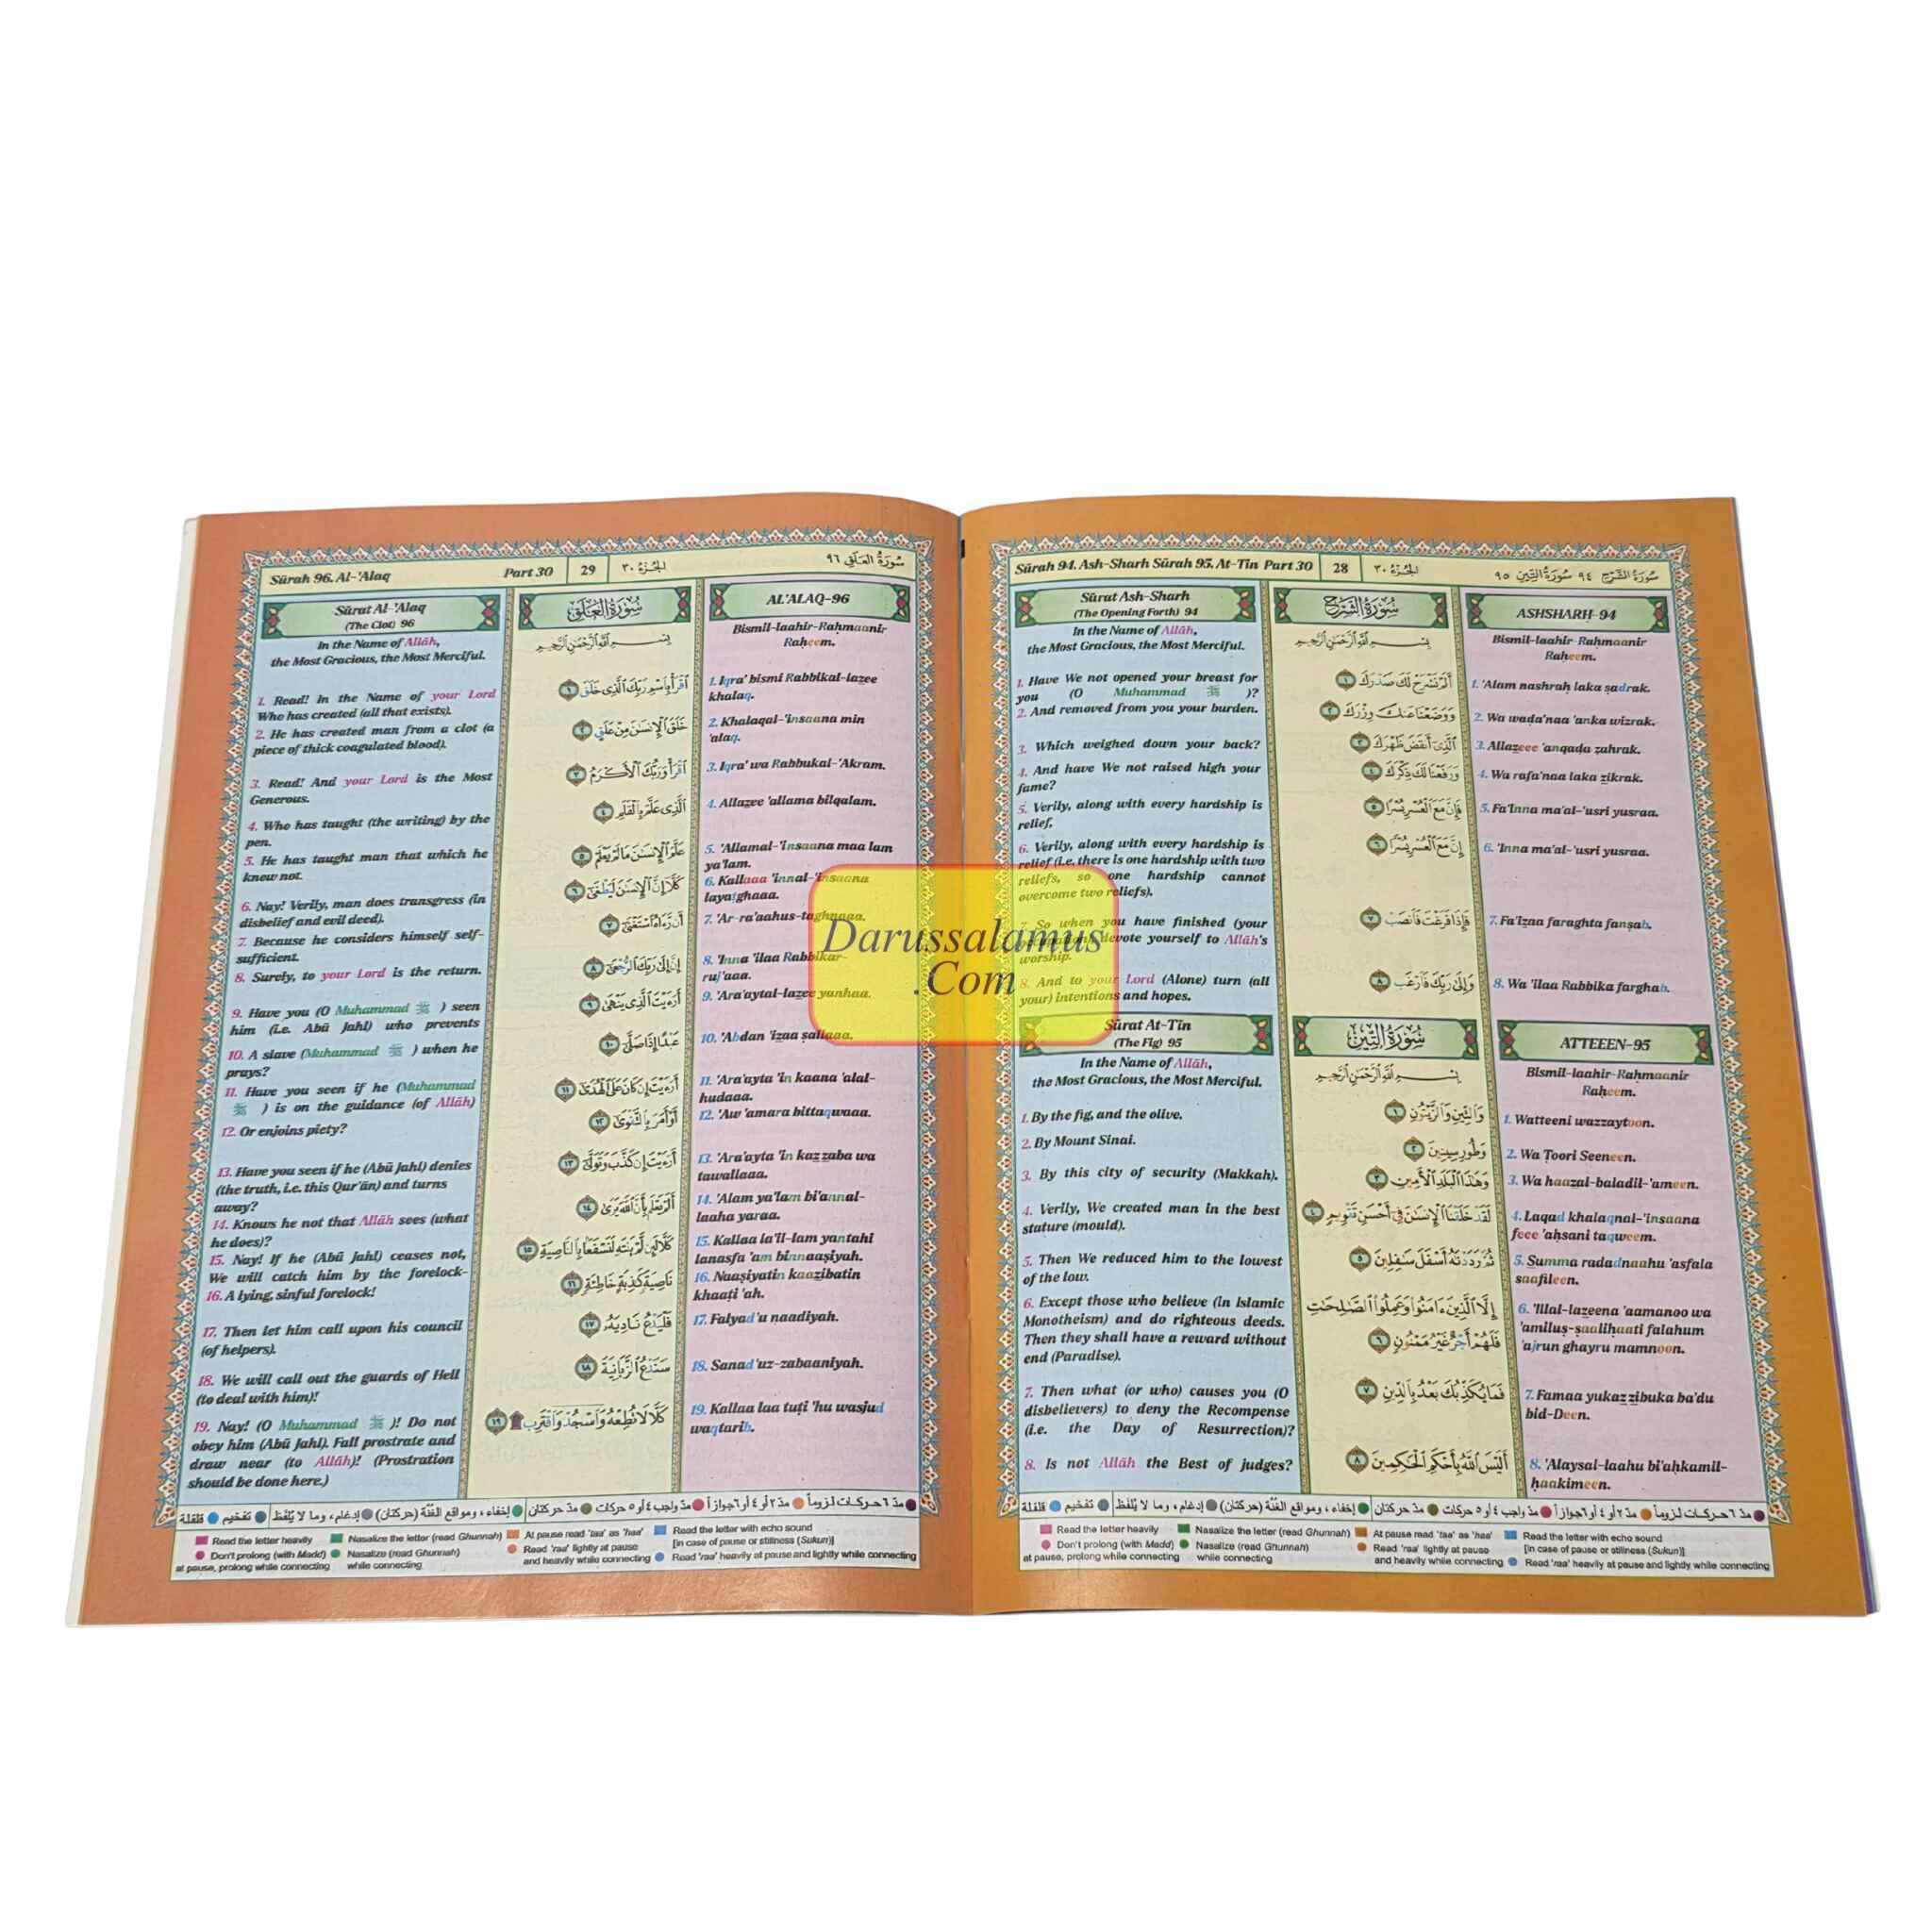 Sūrah 96. Al-'Alaq Part 30 29 الجزء ٣٠ سورة العلق ٩٦
Sūrat Al-'Alaq
(The Clot) 96
In the Name of Allāh,
the Most Gracious, the Most Merciful.
1. Read! In the Name of your Lord
Who has created (all that exists).
2. He has created man from a clot (a
piece of thick coagulated blood).
3. Read! And your Lord is the Most
Generous.
4. Who has taught (the writing) by the
pen.
5. He has taught man that which he
knew not.
6. Nay! Verily, man does transgress (in
disbelief and evil deed).
7. Because he considers himself self-
sufficient.
8. Surely, to your Lord is the return.
9. Have you (O Muhammad ﷺ ) seen
him (i.e. Abū Jahl) who prevents
10. A slave (Muhammad ﷺ ) when he
prays?
11. Have you seen if he (Muhammad
ﷺ ) is on the guidance (of Allāh)
12. Or enjoins piety?
13. Have you seen if he (Abū Jahl) denies
(the truth, i.e. this Qur'ān) and turns
away?
14. Knows he not that Allāh sees (what
he does)?
15. Nay! If he (Abū Jahl) ceases not,
We will catch him by the forelock-
16. A lying, sinful forelock!
17. Then let him call upon his council
(of helpers).
18. We will call out the guards of Hell
(to deal with him)!
19. Nay! (O Muhammad ﷺ )! Do not
obey him (Abū Jahl). Fall prostrate and
draw near (to Allāh)! (Prostration
should be done here.)
سورة العلق
بسم الله الرحمن الرحيم
اقرأ باسم ربك الذي خلق ١
خلق الإنسان من علق ٢
اقرأ وربك الأكرم ٣
الذي علم بالقلم ٤
علم الإنسان ما لم يعلم ٥
كلا إن الإنسان ليطغى ٦
أن رءاه استغنى ٧
إن إلى ربك الرجعى ٨
أرءيت الذي ينهى ٩
عبدا إذا صلى ١٠
أرءيت إن كان على الهدى ١١
أو أمر بالتقوى ١٢
أرءيت إن كذب وتولى ١٣
ألم يعلم بأن الله يرى ١٤
كلا لئن لم ينته لنسفعا بالناصية ١٥
ناصية كاذبة خاطئة ١٦
فليدع ناديه ١٧
سندع الزبانية ١٨
كلا لا تطعه واسجد واقترب ۩ ١٩
AL'ALAQ-96
Bismil-laahir-Raḥmaanir
Raḥeem.
1. Iqra' bismi Rabbikal-lazee
khalaq.
2. Khalaqal-'insaana min
'alaq.
3. Iqra' wa Rabbukal-'Akram.
4. Allazee 'allama bilqalam.
5. 'Allamal-'insaana maa lam
ya'lam.
6. Kallaaa 'innal-'insaana
layaṭghaaa.
7. 'Ar-ra'aahus-taghnaaa.
8. 'Inna 'ilaa Rabbikar-
ruj'aaa.
9. 'Ara'aytal-lazee yanhaa.
10. 'Abdan 'izaa ṣallaaa.
11. 'Ara'ayta 'in kaana 'alal-
hudaaa.
12. 'Aw 'amara bittaqwaaa.
13. 'Ara'ayta 'in kazzaba wa
tawallaaa.
14. 'Alam ya'lam bi'annal-
laaha yaraa.
15. Kallaa la'il-lam yantahi
lanasfa 'am binnaaṣiyah.
16. Naaṣiyatin kaazibatin
khaaṭi 'ah.
17. Falyad'u naadiyah.
18. Sanad'uz-zabaaniyah.
19. Kallaa laa tuṭi 'hu wasjud
waqtarib.
مدّ ٦ حركات لزوماً مدّ ٢ أو ٤ أو ٦ جوازاً مدّ واجب ٤ أو ٥ حركات مدّ حركتان إخفاء، ومواقع الغنّة (حركتان) إدغام، وما لا يُلفَظ تفخيم قلقلة
Read the letter heavily Nasalize the letter (read Ghunnah) At pause read 'taa' as 'haa' Read the letter with echo sound
[in case of pause or stillness (Sukun)]
Don't prolong (with Madd) Nasalize (read Ghunnah) Read 'raa' lightly at pause
at pause, prolong while connecting while connecting and heavily while connecting Read 'raa' heavily at pause and lightly while connecting
Sūrah 94. Ash-Sharh Sūrah 95. At-Tīn Part 30 28 الجزء ٣٠ سورة الشرح ٩٤ سورة التين ٩٥
Sūrat Ash-Sharh
(The Opening Forth) 94
In the Name of Allāh,
the Most Gracious, the Most Merciful.
1. Have We not opened your breast for
you (O Muhammad ﷺ )?
2. And removed from you your burden.
3. Which weighed down your back?
4. And have We not raised high your
fame?
5. Verily, along with every hardship is
relief,
6. Verily, along with every hardship is
relief (i.e. there is one hardship with two
reliefs, so one hardship cannot
overcome two reliefs).
7. So when you have finished (your
devote yourself to Allāh's
worship.
8. And to your Lord (Alone) turn (all
your) intentions and hopes.
سورة الشرح
بسم الله الرحمن الرحيم
ألم نشرح لك صدرك ١
ووضعنا عنك وزرك ٢
الذي أنقض ظهرك ٣
ورفعنا لك ذكرك ٤
فإن مع العسر يسرا ٥
إن مع العسر يسرا ٦
فإذا فرغت فانصب ٧
وإلى ربك فارغب ٨
ASHSHARḤ-94
Bismil-laahir-Raḥmaanir
Raḥeem.
1. 'Alam nashraḥ laka ṣadrak.
2. Wa waḍa'naa 'anka wizrak.
3. Allazeee 'anqaḍa ẓahrak.
4. Wa rafa'naa laka zikrak.
5. Fa'Inna ma'al-'usri yusraa.
6. 'Inna ma'al-'usri yusraa.
7. Fa'Izaa faraghta fanṣab.
8. Wa 'ilaa Rabbika farghab.
Sūrat At-Tīn
(The Fig) 95
In the Name of Allāh,
the Most Gracious, the Most Merciful.
1. By the fig, and the olive.
2. By Mount Sinai.
3. By this city of security (Makkah).
4. Verily, We created man in the best
stature (mould).
5. Then We reduced him to the lowest
of the low.
6. Except those who believe (in Islamic
Monotheism) and do righteous deeds.
Then they shall have a reward without
end (Paradise).
7. Then what (or who) causes you (O
disbelievers) to deny the Recompense
(i.e. the Day of Resurrection)?
8. Is not Allāh the Best of judges?
سورة التين
بسم الله الرحمن الرحيم
والتين والزيتون ١
وطور سينين ٢
وهذا البلد الأمين ٣
لقد خلقنا الإنسان في أحسن تقويم ٤
ثم رددناه أسفل سافلين ٥
إلا الذين ءامنوا وعملوا الصالحات
فلهم أجر غير ممنون ٦
فما يكذبك بعد بالدين ٧
أليس الله بأحكم الحاكمين ٨
ATTEEEN-95
Bismil-laahir-Raḥmaanir
Raḥeem.
1. Watteeni wazzaytoon.
2. Wa Ṭoori Seeneen.
3. Wa haazal-baladil-'ameen.
4. Laqad khalaqnal-'insaana
feee 'aḥsani taqweem.
5. Summa radadnaahu 'asfala
saafileen.
6. 'Illal-lazeena 'aamanoo wa
'amiluṣ-ṣaaliḥaati falahum
'ajrun ghayru mamnoon.
7. Famaa yukazzibuka ba'du
bid-Deen.
8. 'Alaysal-laahu bi'aḥkamil-
ḥaakimeen.
مدّ ٦ حركات لزوماً مدّ ٢ أو ٤ أو ٦ جوازاً مدّ واجب ٤ أو ٥ حركات مدّ حركتان إخفاء، ومواقع الغنّة (حركتان) إدغام، وما لا يُلفَظ تفخيم قلقلة
Read the letter heavily Nasalize the letter (read Ghunnah) At pause read 'taa' as 'haa' Read the letter with echo sound
[in case of pause or stillness (Sukun)]
Don't prolong (with Madd) Nasalize (read Ghunnah) Read 'raa' lightly at pause
at pause, prolong while connecting while connecting and heavily while connecting Read 'raa' heavily at pause and lightly while connecting
Darussalamus
.Com